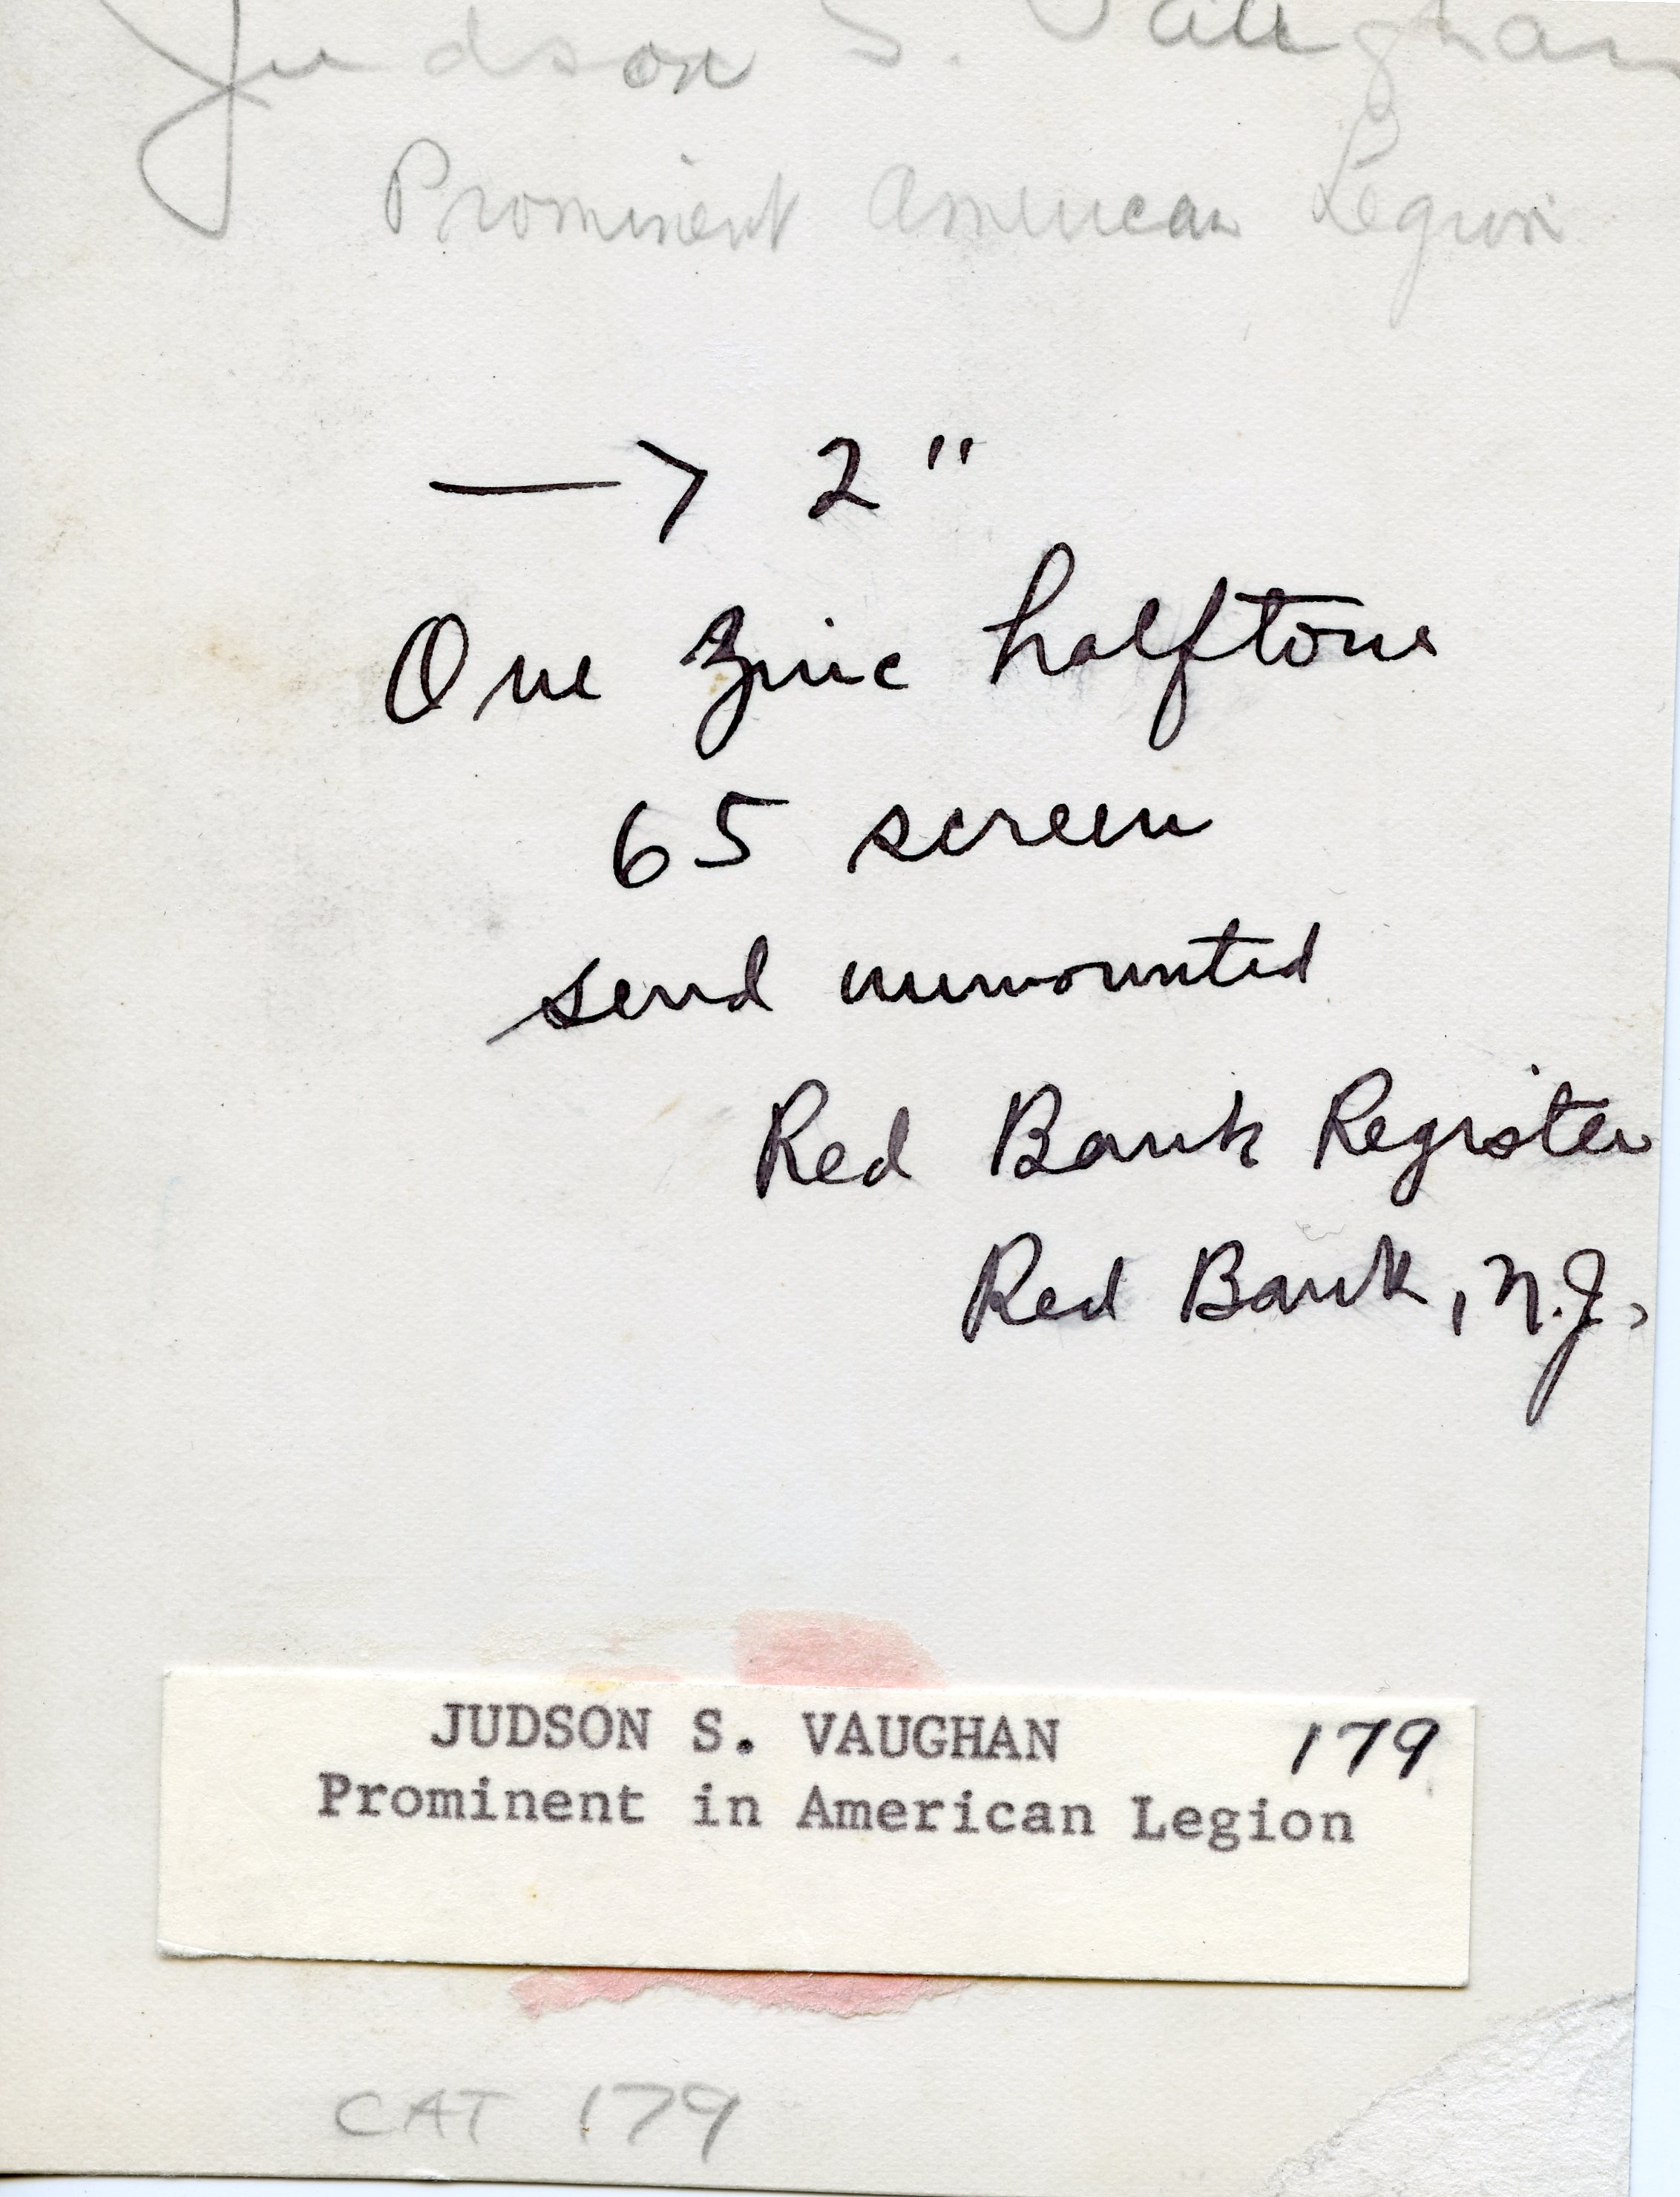 Judson S. Vaughan
Prominent American Legion
→ 2"
One zinc halftone
65 screen
send unmounted
Red Bank Register
Red Bank, N.J.
JUDSON S. VAUGHAN 179
Prominent in American Legion
CAT 179